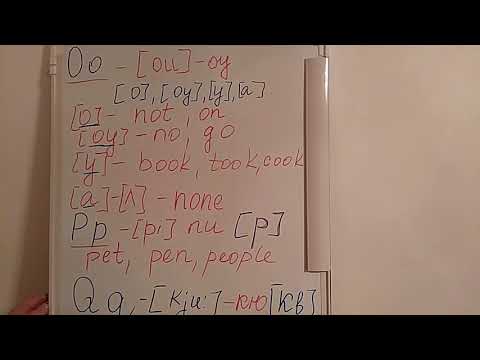 Oo - [ou] - оу
[о], [оу], [у], [а]
[о] - not, on
[оу] - no, go
[у] - book, took, cook
[а] - [Λ] - none
Pp - [pi] пи [p]
pet, pen, people
Qq - [kju:] - кю [кв]